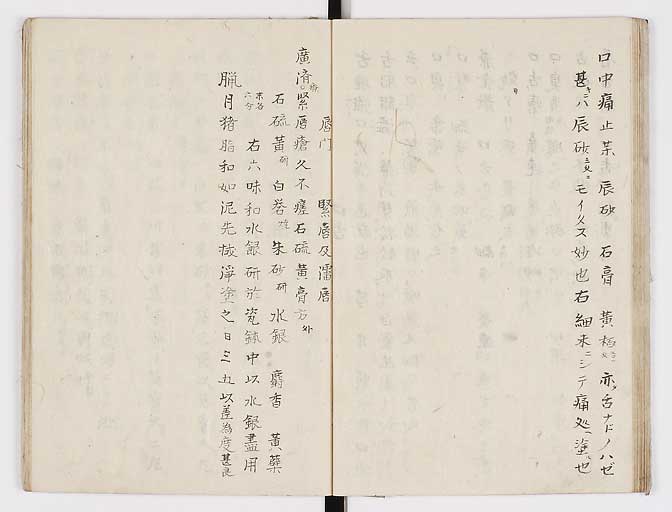 口中痛止薬 辰砂 石膏 黄栢 亦舌ナドノハゼ
甚キニハ辰砂 モイタス妙也右細末ニシテ痛処ニ塗也
唇門 緊唇及瀋唇
廣済 療 緊唇瘡久不瘥石硫黄膏方 外
石硫黄 研 白礬 朱砂 研 水銀 麝香 黄蘗
末各六分 右六味和水銀研於瓷鉢中以水銀盡用
臘月猪脂和如泥先拭淨塗之日三五以差為度甚良